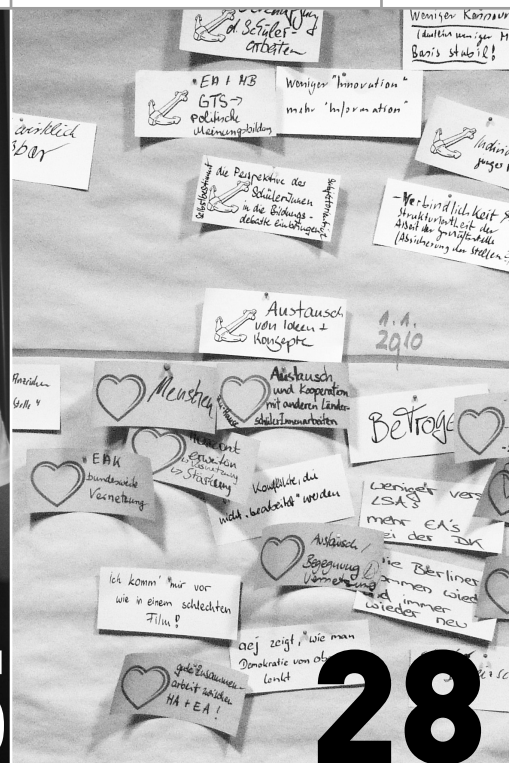 d. Schüler-
arbeiten
Weniger
Basis stabil!
• EA + HB
GTS →
politische
Meinungsbildung
Weniger "Innovation"
mehr "Information"
wirklich
bar
junges
die Perspektive der
SchülerInnen
in die Bildungs-
debatte einbringen
Selbstbestimmt
- Verbindlichkeit
Strukturiertheit der
(Absicherung der Stellen
Austausch
von Ideen +
Konzepte
1.1.
2010
Menschen
Austausch
und Kooperation
mit anderen Länder-
schülerInnenarbeiten
Betroge
• EAK
bundesweite
Vernetzung
Horizont
erweitern
→ Vernetzung
→ Stärkung
Konflikte, die
nicht "bearbeitet" werden
weniger vers
LSA's
mehr EA's
bei der DK
Austausch /
Begegnung
Vernetzung
die Berliner
kommen wied
und immer
wieder neu
Ich komm' mir vor
wie in einem schlechten
Film!
aej zeigt, wie man
Demokratie von ob
lenkt
gute Zusammen-
arbeit zwischen
HA + EA!
28